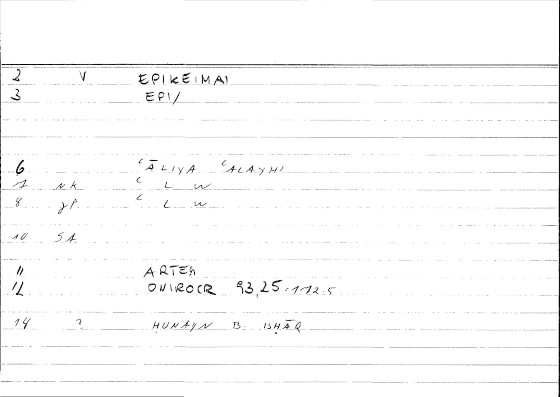 2 V EPIKEIMAI
3 EPI/
6 ʿĀLIYA ʿALAYHI
7 NK ʿ L W
8 JP ʿ L W
10 SA
11 ARTEM
12 ONIROCR 93,25-112.5
14 2 ḤUNAYN B. ISḤĀQ